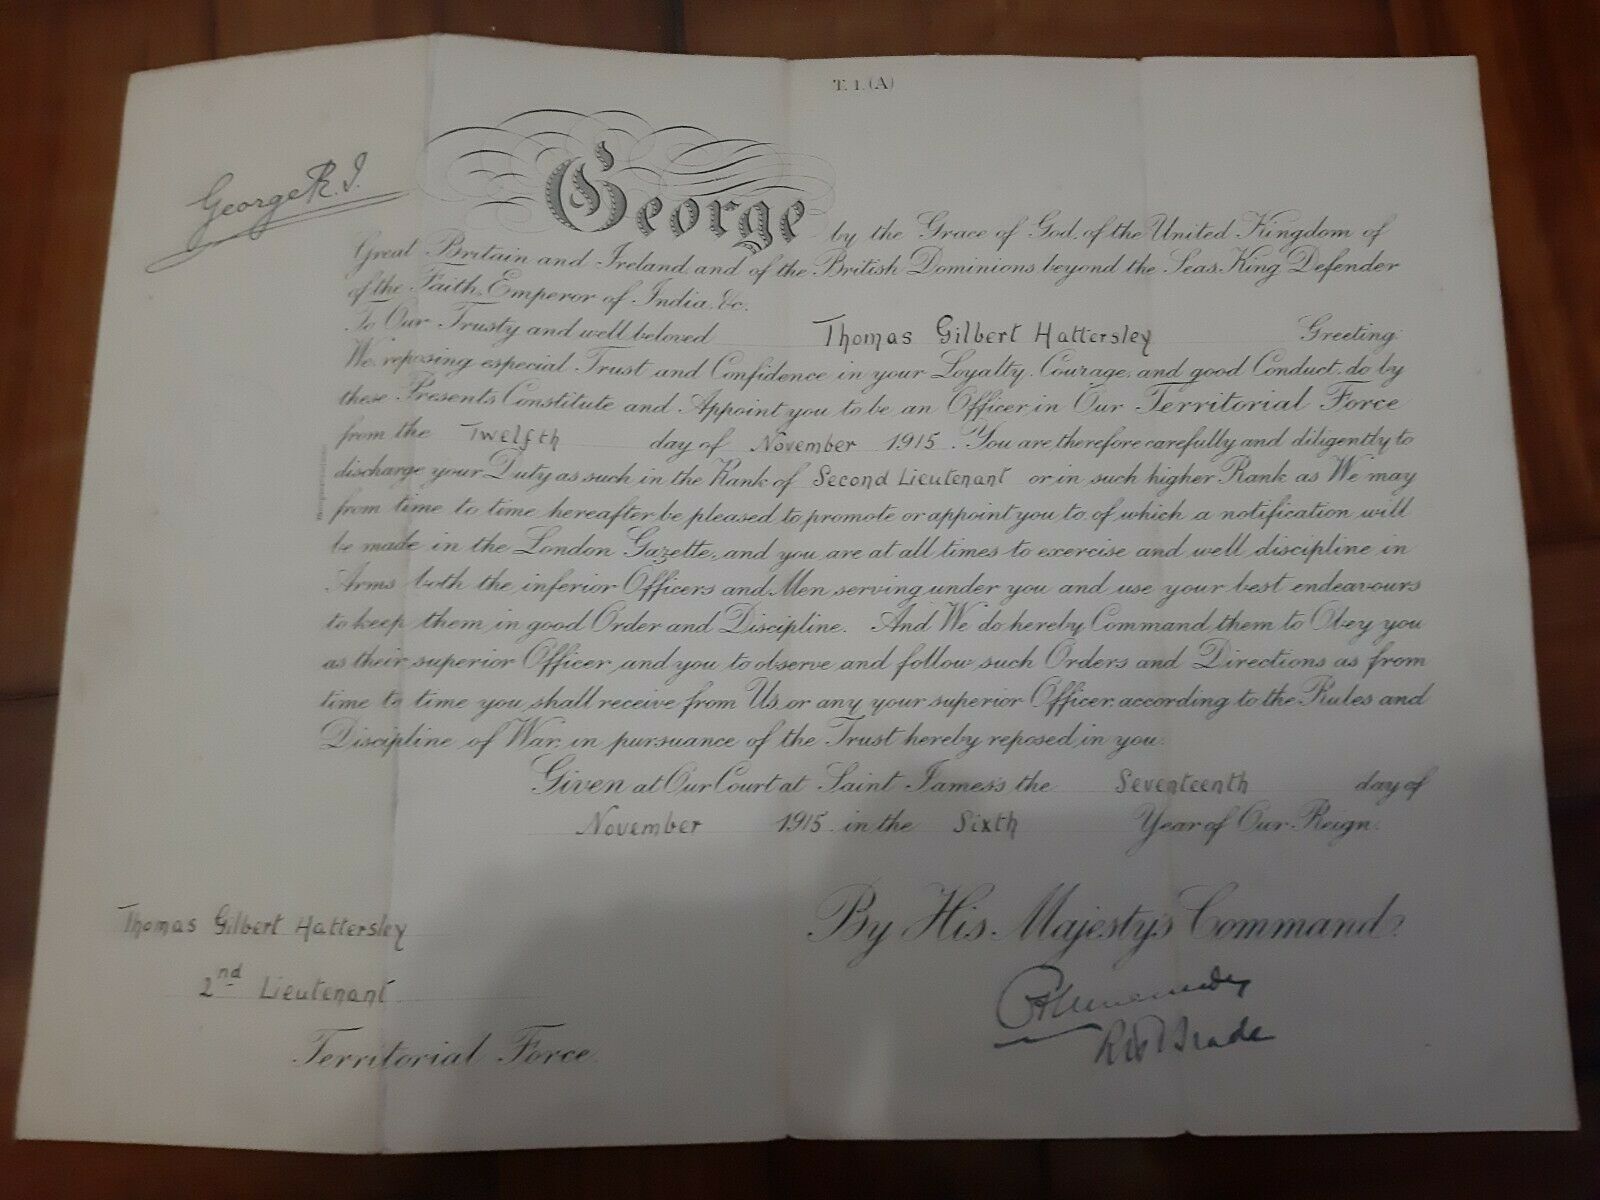 T. 1. (A)
George R. I.
George by the Grace of God, of the United Kingdom of
Great Britain and Ireland, and of the British Dominions beyond the Seas, King, Defender
of the Faith, Emperor of India, &c.
To Our Trusty and well beloved Thomas Gilbert Hattersley Greeting:
We, reposing especial Trust and Confidence in your Loyalty, Courage, and good Conduct, do by
these Presents Constitute and Appoint you to be an Officer in Our Territorial Force
from the Twelfth day of November 1915. You are therefore carefully and diligently to
discharge your Duty as such in the Rank of Second Lieutenant or in such higher Rank as We may
from time to time hereafter be pleased to promote or appoint you to, of which a notification will
be made in the London Gazette, and you are at all times to exercise and well discipline in
Arms both the inferior Officers and Men serving under you and use your best endeavours
to keep them in good Order and Discipline. And We do hereby Command them to Obey you
as their superior Officer, and you to observe and follow such Orders and Directions as from
time to time you shall receive from Us, or any your superior Officer, according to the Rules and
Discipline of War, in pursuance of the Trust hereby reposed in you.
Given at Our Court at Saint James's the Seventeenth day of
November 1915 in the Sixth Year of Our Reign.
By His Majesty's Command.
Thomas Gilbert Hattersley
2nd Lieutenant
Territorial Force.
R H Brade